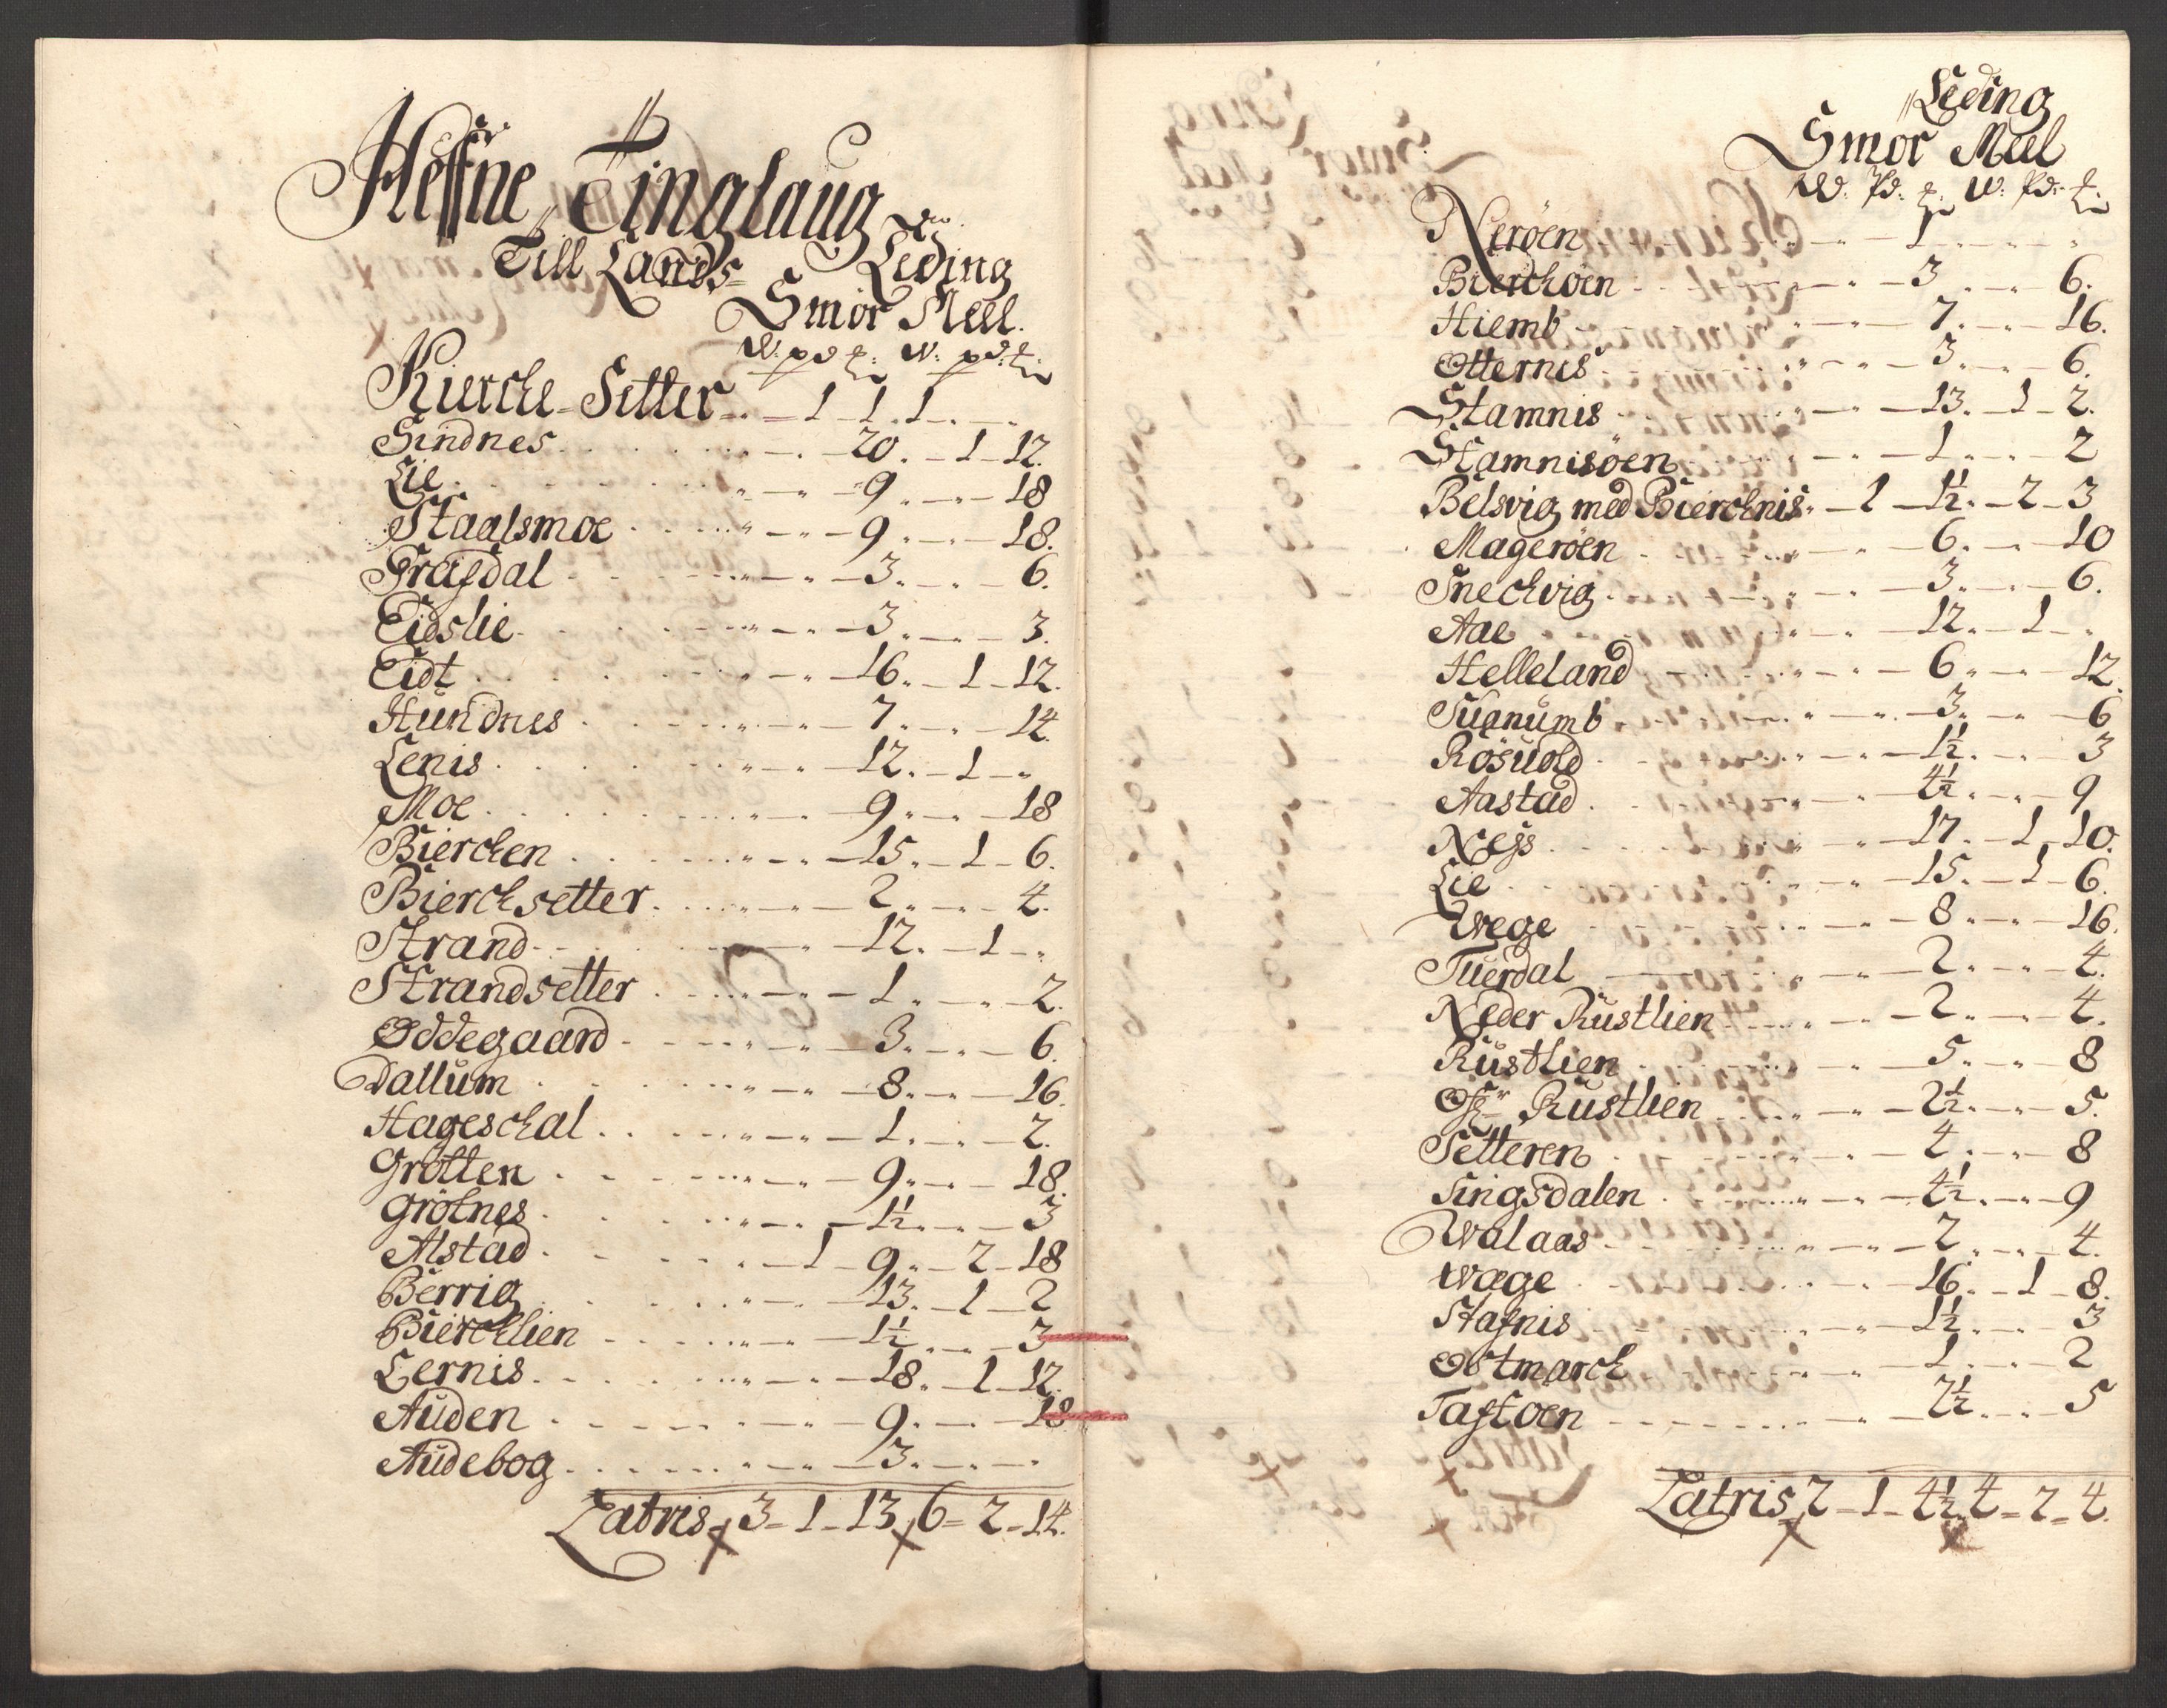 Heffne Tinglaug
Till Lands
Leding
Smör Meel.
W: pd W: pd:
Kierche-Setter " — 1 — 1. 1 — "
Sindnes " — 20. — 1 — 12.
Lie " — " — 9 " — 18
Staalsmoe " — " — 9 " — 18.
Grafdal " — " — 3. — " — 6.
Eidslie " — " — 3 " — " — 3.
Eidt " — " — 16. — 1 — 12.
Hundnes " — " — 7 " — " — 14.
Lenis " — " — 12. — 1 — "
Moe " — " — 9 " — " — 18
Bierchen " — " — 15. — 1 — 6.
Bierchsetter " — " — 2 " — " — 4.
Strand " — 12. — 1 — "
Strandsetter " — " — 1 " — " — 2.
Oddegaard " — " — 3. — " — 6.
Dallum " — " — 8. — " — 16.
Hageschal " — " — 1. — " — 2.
Grotten " — " — 9. — " — 18.
Grötnes " — " — 1½ " — " — 3
Alstad " — 1 — 9. — 2 — 18
Berrig " — " — 13. — 1 — 2
Bierchlien " — " — 1½ " — " — 3
Lernis " — " — 18. — 1 — 12.
Auden " — " — 9. — " — 18.
Audebog " — " — 3. — " — "
Latris 3 — 1 — 13 6 = 2 = 14.
Leding
Smör Meel
W: Pd: W: Pd:
Neröen " — " — 1 " — " "
Bierchöen " — " — 3 " — " — 6.
Hiemb " — " — 7. — " — 16.
Otternes " — " — 3. — " — 6.
Stamnis " — " — 13. — 1 — 2.
Stamnisöen " — " — 1 " — " — 2
Belsvig med Bierchnis " — 1 — 1½. — 2 — 3
Mageröen " — " — 6. — " — 10
Snechvig " — " — 3. — " — 6.
Aae " — " — 12. — 1 — "
Helleland " — " — 6 " — " — 12.
Suanumb " — " — 3. — " — 6
Rösuold " — " — 1½ " — " — 3
Aastad " — " — 4½ " — " — 9
Næss " — " — 17. — 1 — 10.
Lie " — " — 15. — 1 — 6.
Wege " — " — 8 " — " — 16.
Tuerdal " — " — 2 " — " — 4.
Neder Rustlien " — " — 2 " — " — 4.
Rustlien " — " — 5. — " — 8
Rustlien " — " — 2½ " — " — 5.
Setteren " — " — 4 " — " — 8
Singsdalen " — " — 4½ " — " — 9
Walaas " — " — 2 " — " — 4.
Wæge " — " — 16. — 1 — 8.
Stafnis " — " — 1½ " — " — 3
Ostmarch " — " — 1 " — " — 2
Tastöen " — " — 2½ " — " — 5
Latris 2 — 1 — 4½. 4 = 2 = 4.